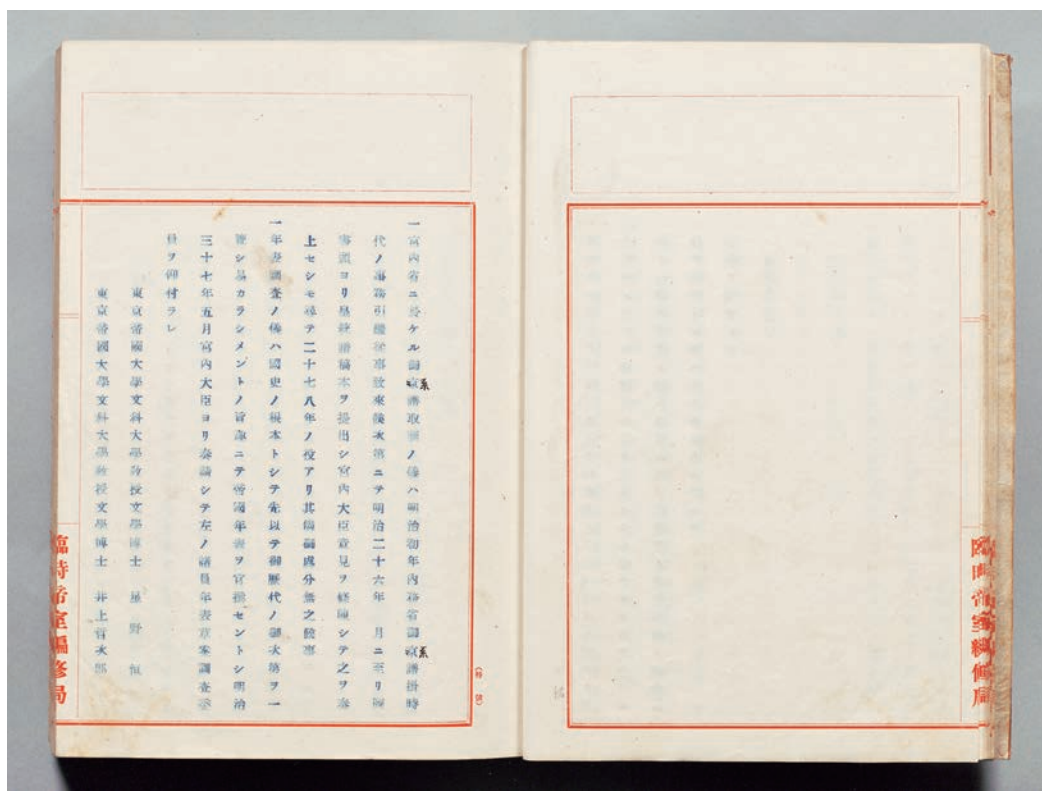 一宮內省ニ於ケル御系譜取調ノ儀ハ明治初年內務省御系譜掛時
代ノ事務引繼從事致來候次第ニテ明治二十六年 月ニ至リ
寮頭ヨリ皇統譜稿本ヲ提出シ宮內大臣意見ヲ條陳シテ之ヲ奏
上セシモ尋テ二十七八年ノ役アリ其儘御處分無之候事
一年表調查ノ儀ハ國史ノ根本トシテ先以テ御歷代ノ御次第ヲ一
覽シ易カラシメントノ旨趣ニテ帝國年表ヲ官撰セントシ明治
三十七年五月宮內大臣ヨリ奏請シテ左ノ諸員年表草案調查委
員ヲ仰付ラレ
東京帝國大學文科大學敎授文學博士 星野 恒
東京帝國大學文科大學敎授文學博士 井上哲次郎
臨時帝室編修局
臨時帝室編修局